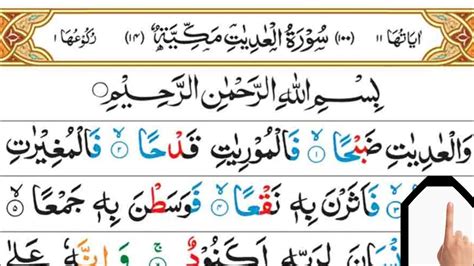 اٰيَاتُهَا ١١ (١٠٠) سُوْرَةُ الْعٰدِيٰتِ مَكِّيَّةٌ (١٤) رُكُوْعُهَا ١
بِسْمِ اللّٰهِ الرَّحْمٰنِ الرَّحِيْمِ
وَالْعٰدِيٰتِ ضَبْحًا ۙ﴿١﴾ فَالْمُوْرِيٰتِ قَدْحًا ۙ﴿٢﴾ فَالْمُغِيْرٰتِ
﴿٣﴾ فَاَثَرْنَ بِهٖ نَقْعًا ۙ﴿٤﴾ فَوَسَطْنَ بِهٖ جَمْعًا ۙ﴿٥﴾
لِرَبِّهٖ لَكَنُوْدٌ ۚ﴿٦﴾ وَاِنَّهٗ عَلٰى